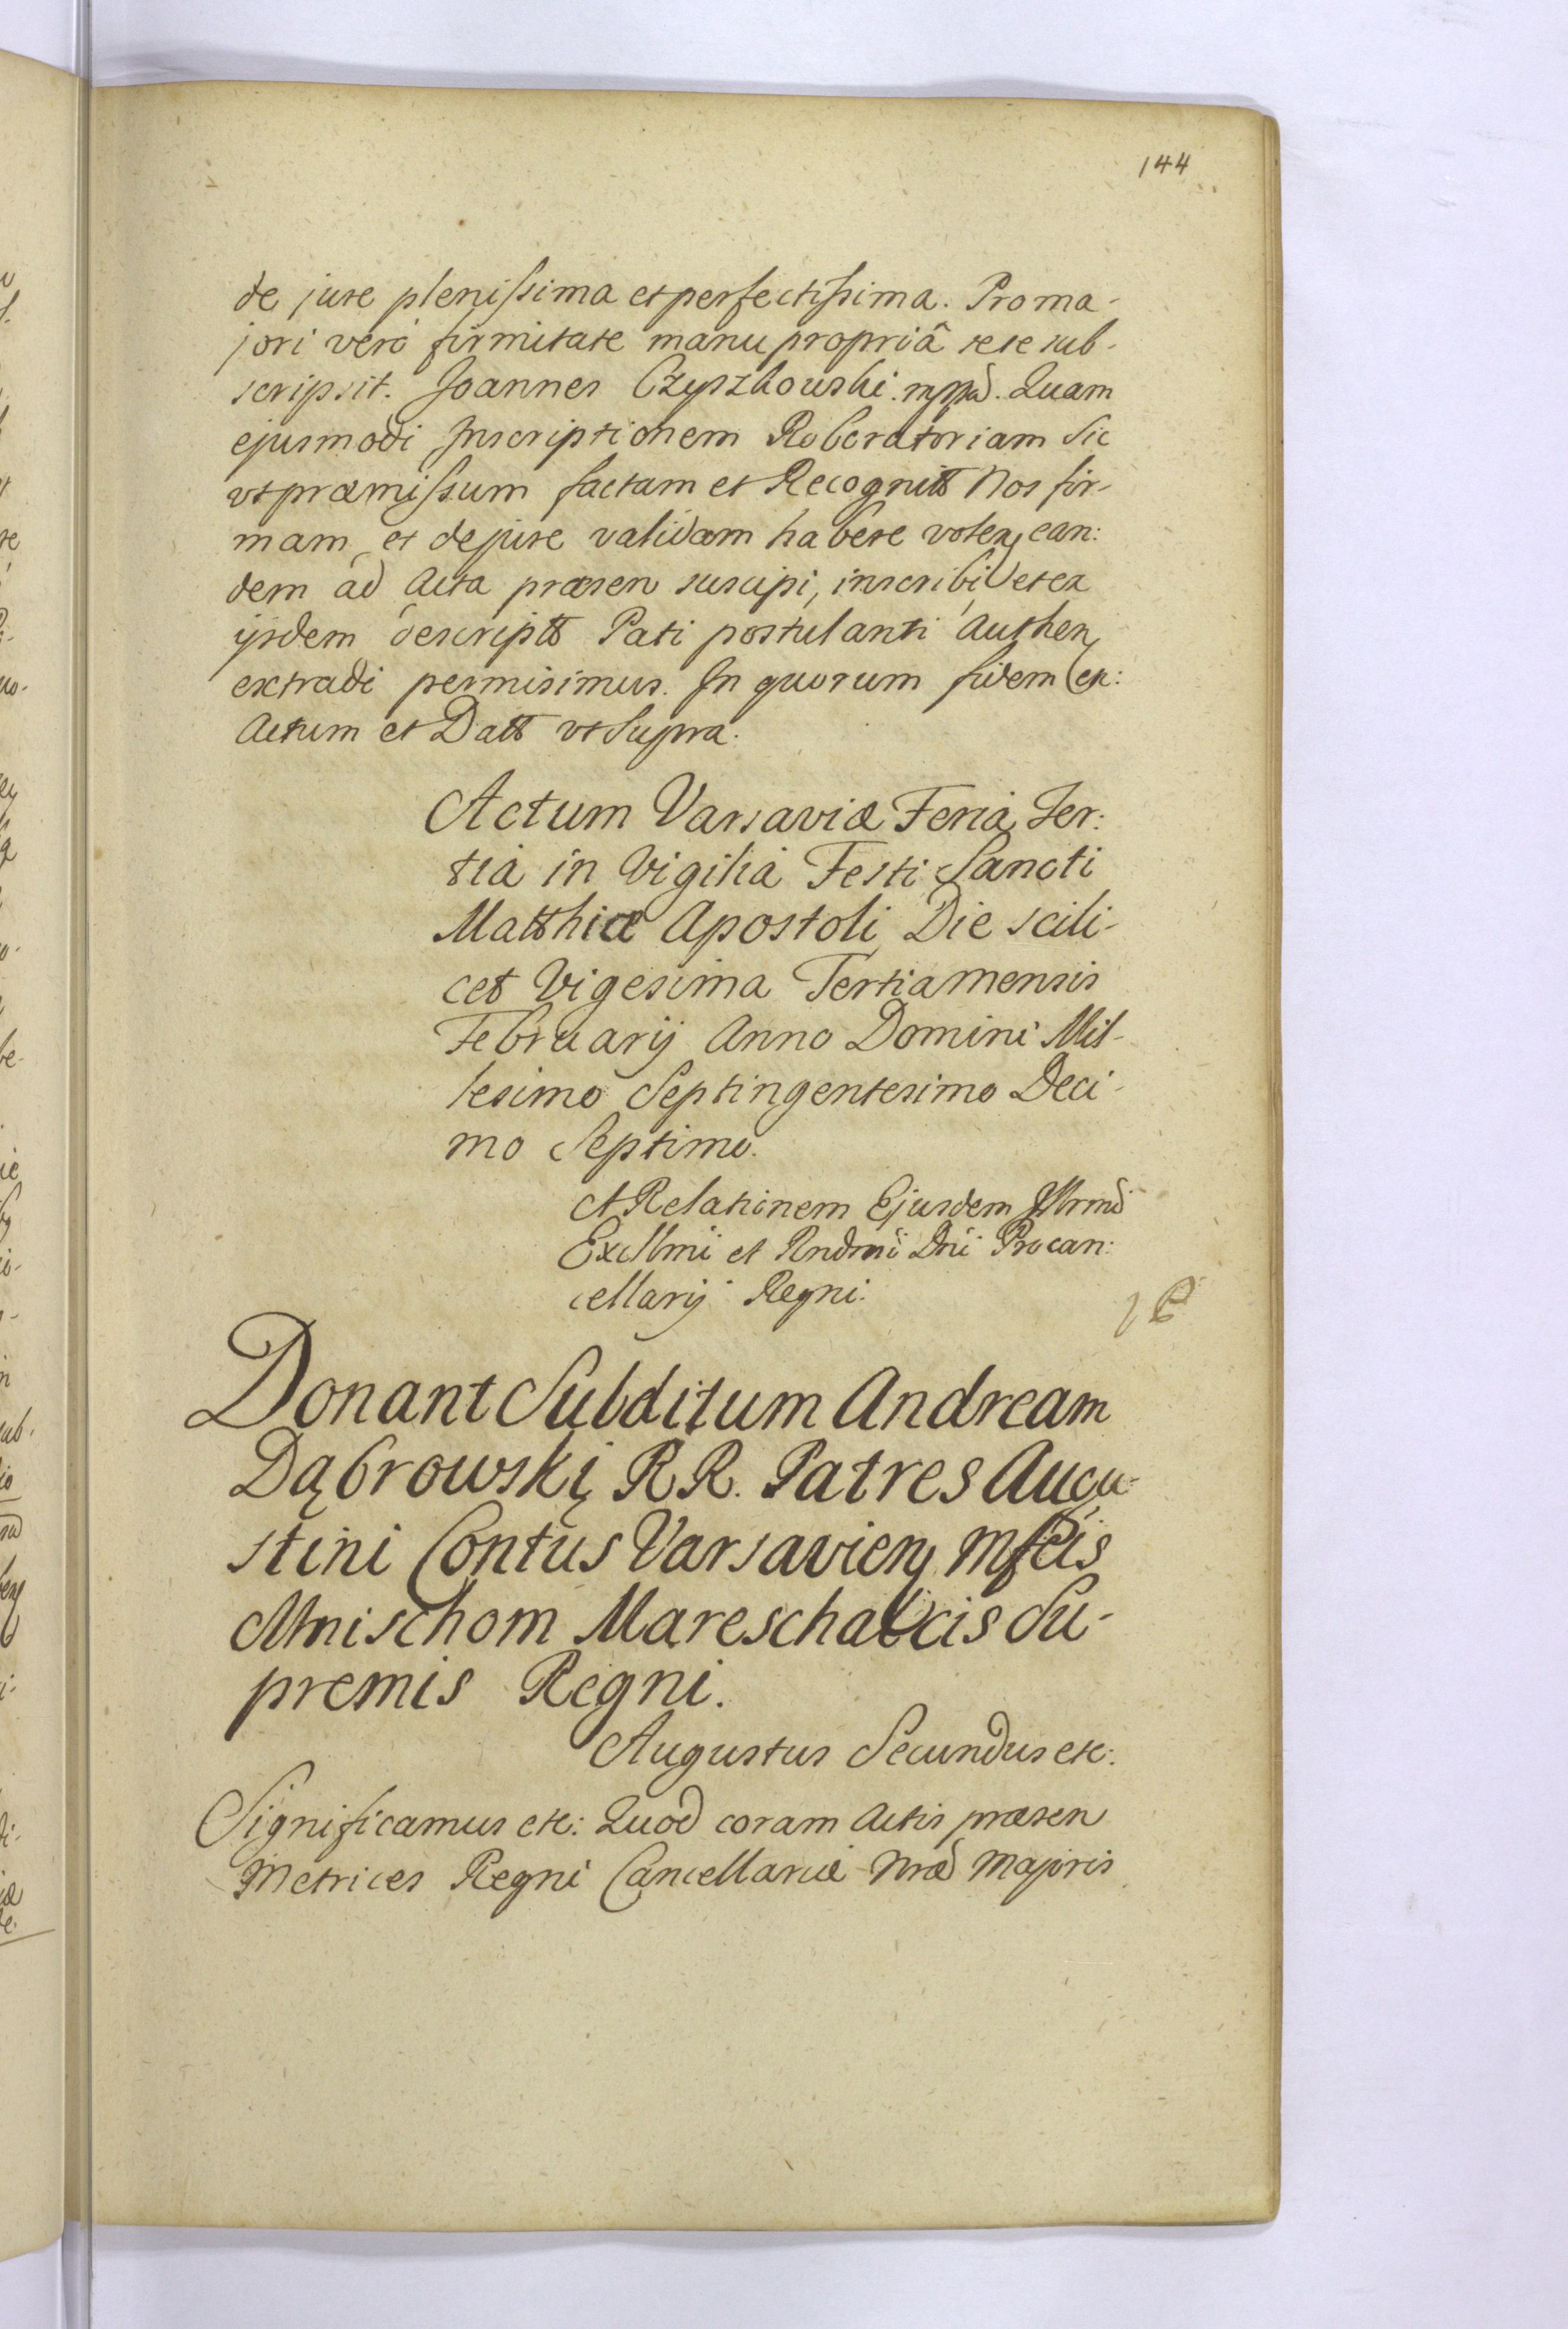 144
de jure plenissima et perfectissima. Pro ma-
jori verò firmitate manu propriâ sese sub-
scripsit. Joannes Czyszkowski mppa. Quam
ejusmodi Inscriptionem Roboratoriam sic
vt præmissum factam et Recognitt Nos fir-
mam et de jure validam habere volen can:
dem ad Acta præsen suscipi, inscribi et ex
ijsdem descriptt Parti postulanti Authen
extradi permisimus. In quorum fidem etc:
Actum et Datt vt Supra.
Actum Varsaviæ Feriâ Ter:
tiâ in Vigiliâ Festi Sancti
Matthiæ Apostoli Die scili-
cet Vigesima Tertia mensis
Februarij Anno Domini Mil-
lesimo Septingentesimo Deci-
mo Septimo.
A Relationem Ejusdem Illrmi
Excllmi et Rndmi Dni Procan:
cellarij Regni.
Donant Subditum Andream
Dąbrowskį RR. Patres Augu-
stini Contus Varsavien Mfcis
Mnischom Mareschalcis Su-
premis Regni.
Augustus Secundus etc:
Significamus etc: Quod coram Actis præsen
Metrices Regni Cancellariæ Nræ Majoris